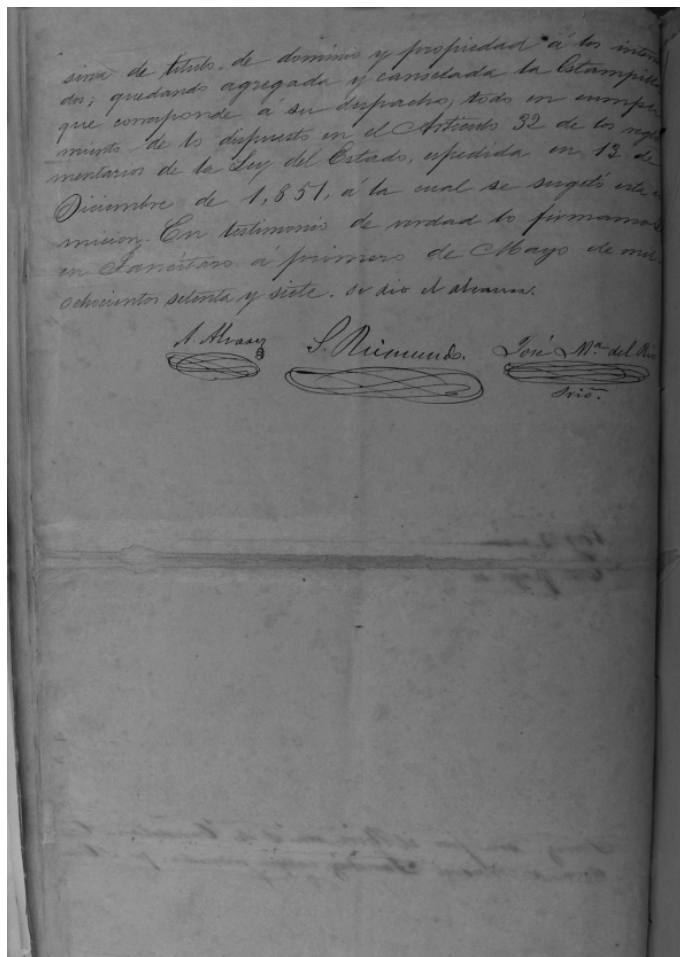 sirva de titulo de dominio y propiedad á los interesa
dos; quedando agregada y canselada la Estampilla
que corresponde á su despacho; todo en cumpli
miento de lo dispuesto en el Articulo 32 de los regla
mentarios de la Ley del Estado, espedida en 13 de
Diciembre de 1,851, á la cual se sugetó esta co
micion. En testimonio de verdad lo firmamos
en Tancítaro á primero de Mayo de mil
ochocientos setenta y siete. se dio el
A. Alvarez
S. Riemundo.
José Ma. del Rio
Srio.